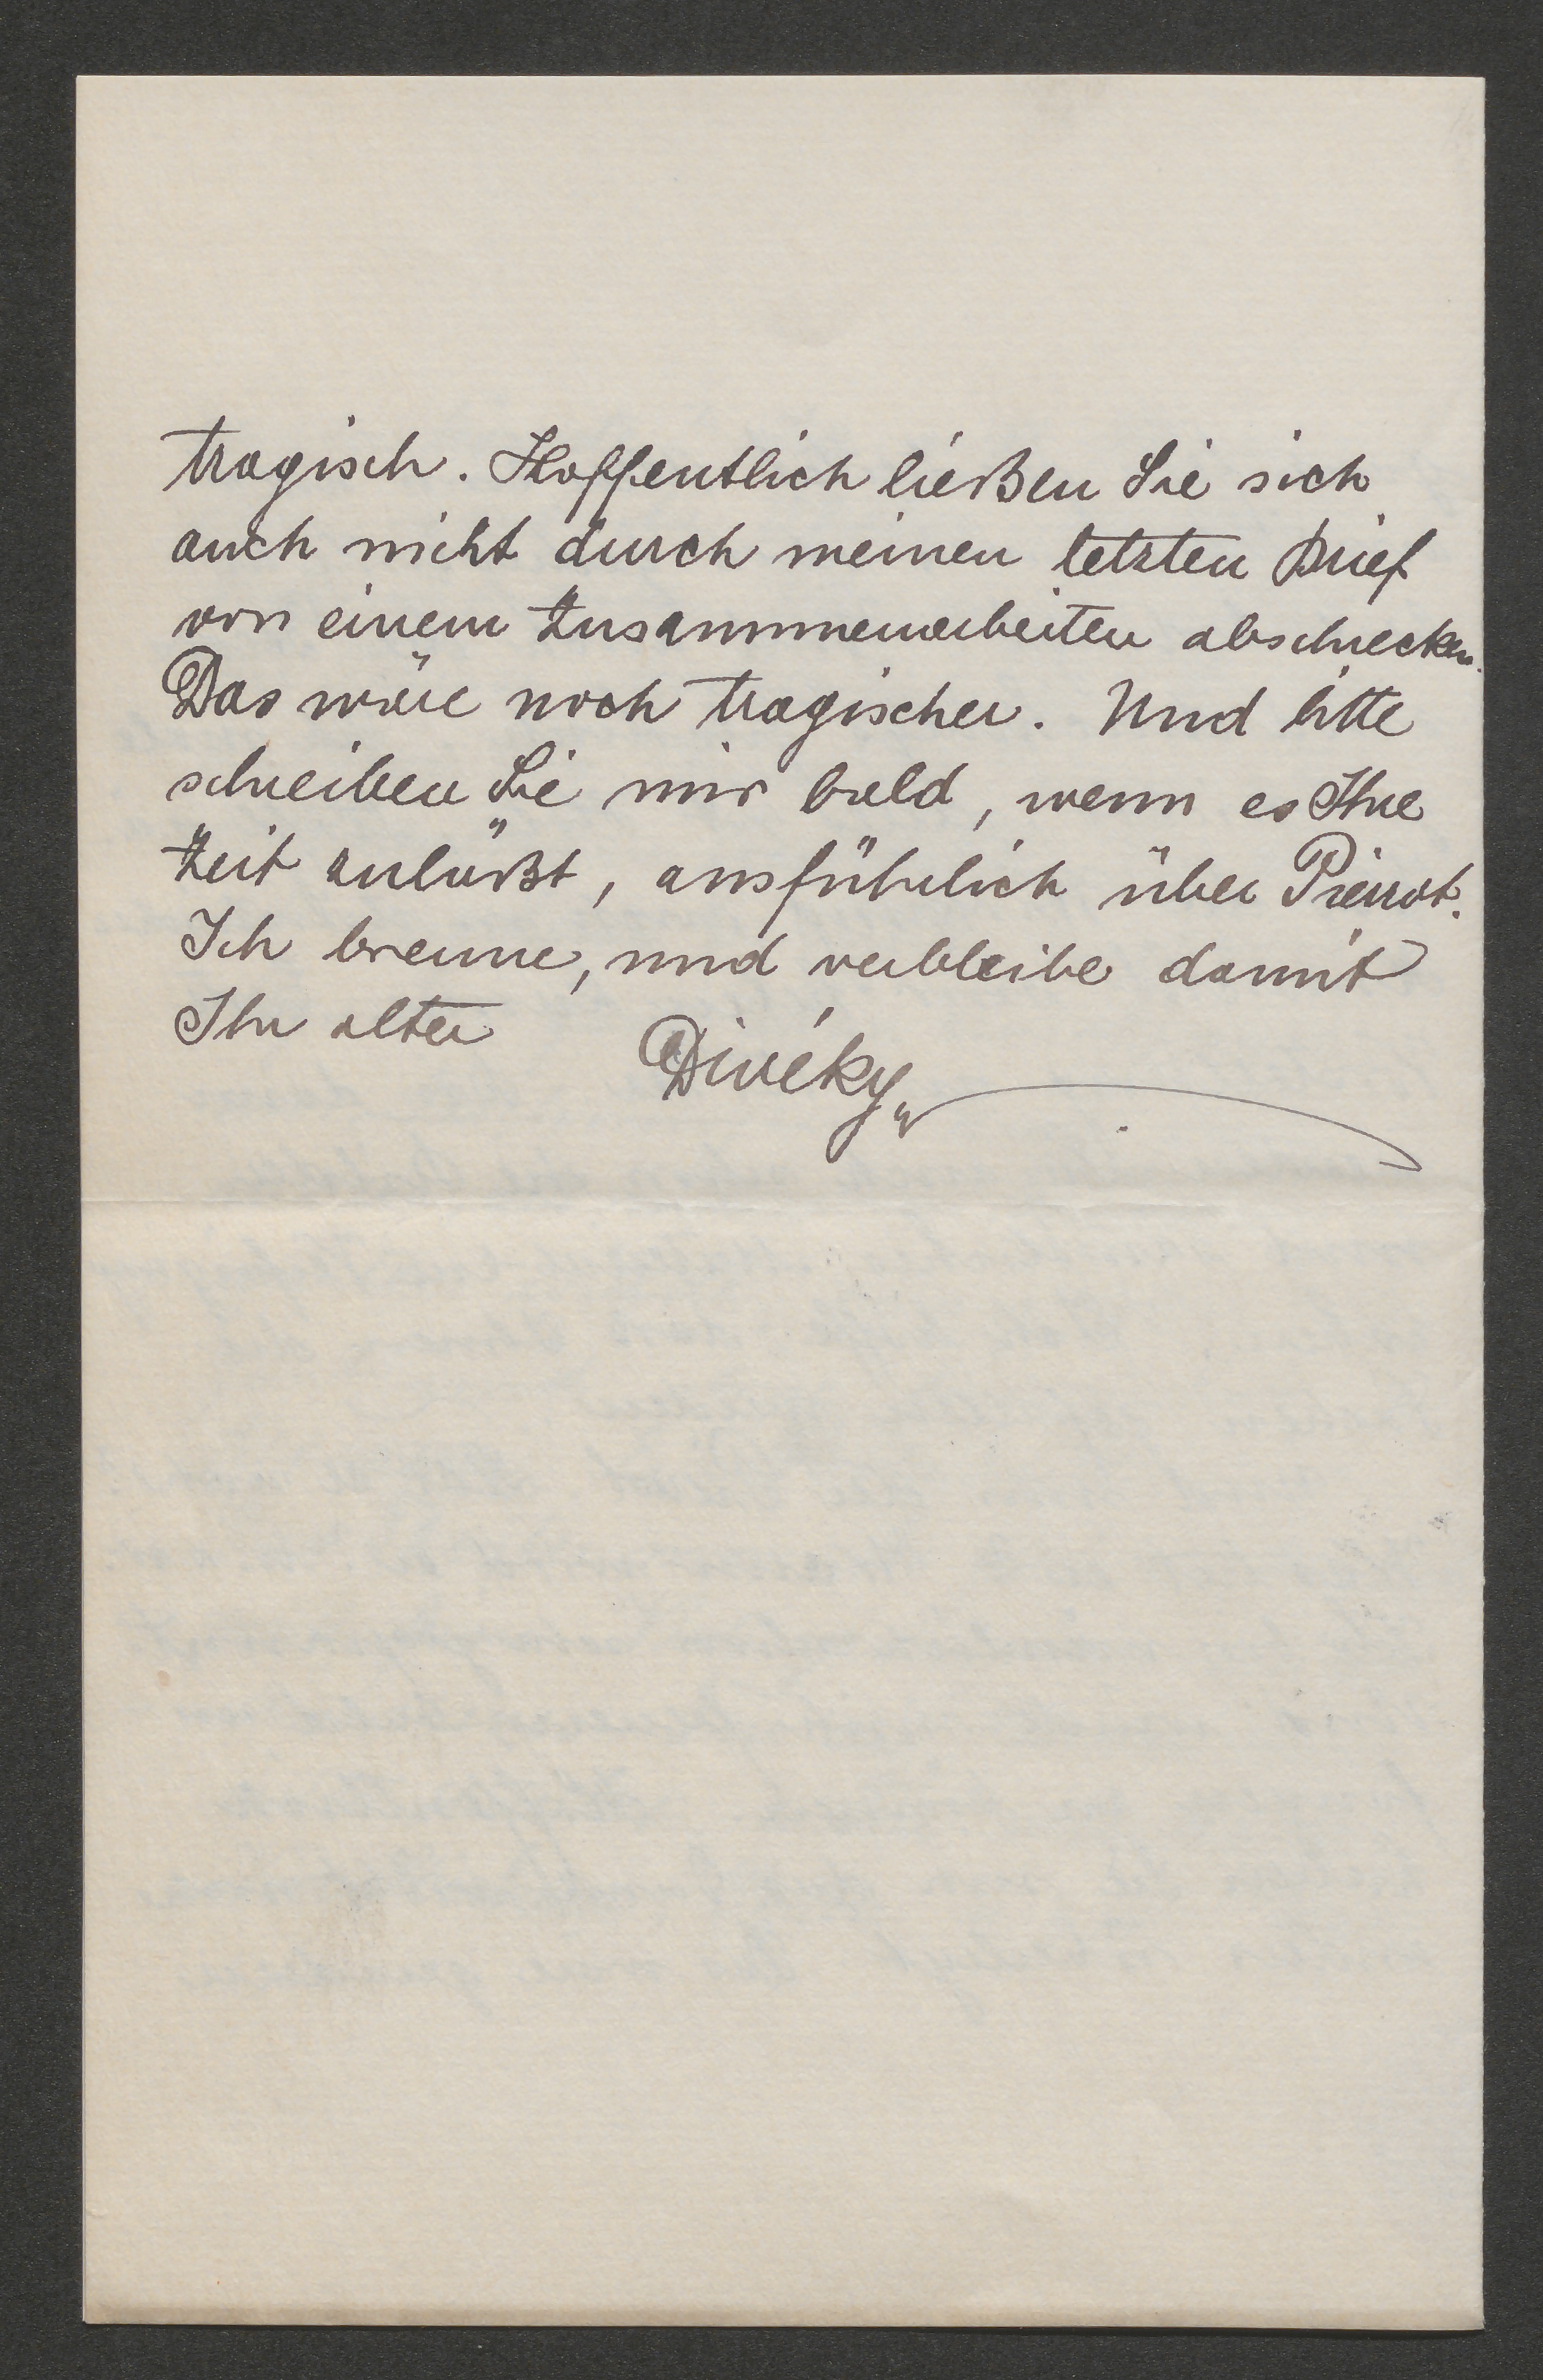 tragisch. Hoffentlich ließen Sie sich
auch nicht durch meinen letzten Brief
von einem Zusammenarbeiten abschrecken.
Das wäre noch tragischer. Und bitte
schreiben Sie mir bald, wenn es Ihre
Zeit zuläßt, ausführlich über Pierrot.
Ich brenne, und verbleibe damit
Ihr alter
Divéky